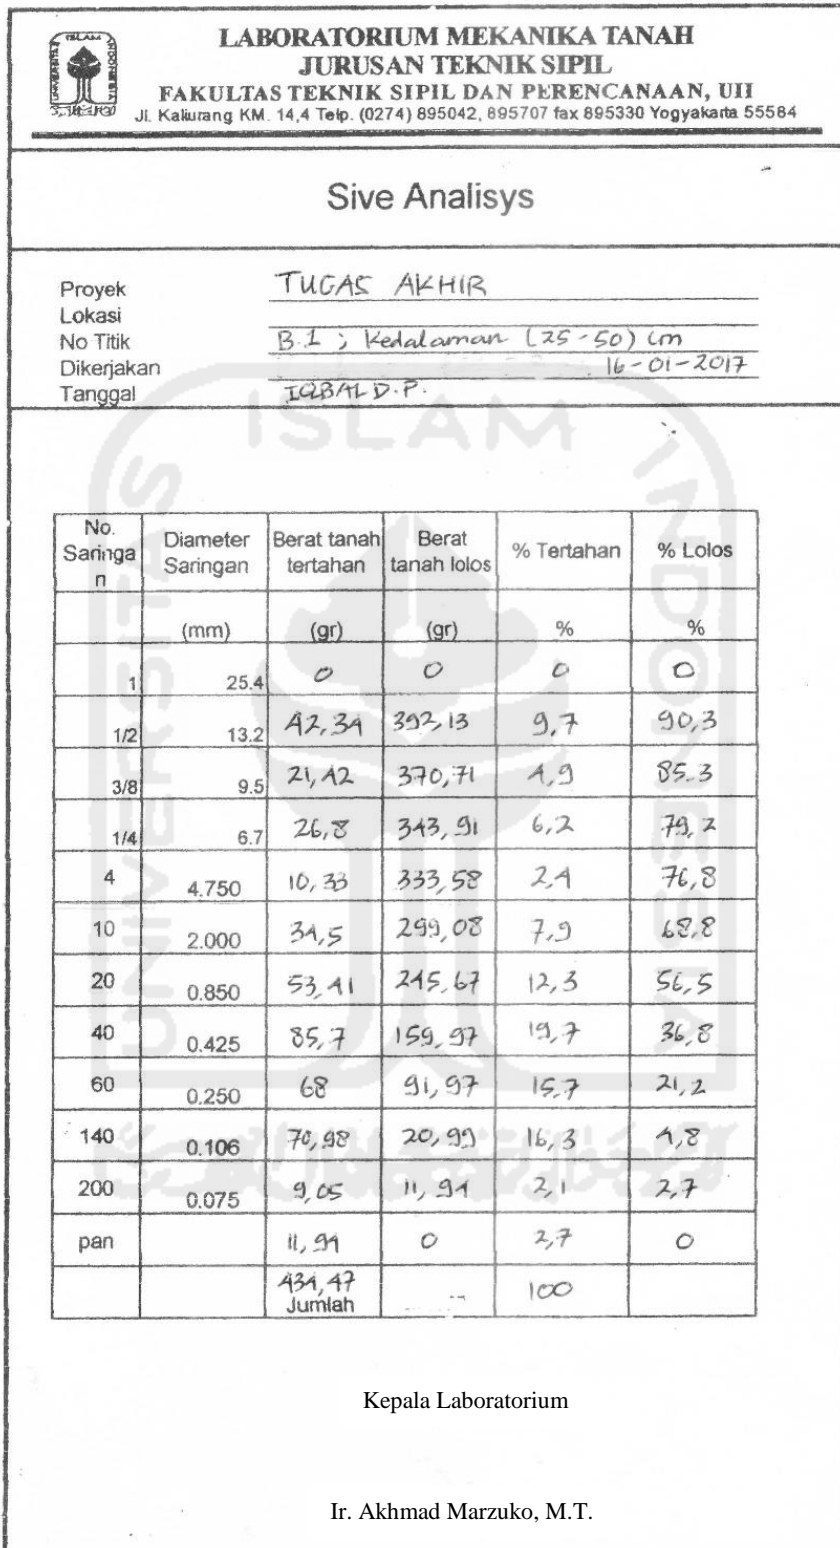 LABORATORIUM MEKANIKA TANAH
JURUSAN TEKNIK SIPIL
FAKULTAS TEKNIK SIPIL DAN PERENCANAAN, UII
Jl. Kaliurang KM. 14,4 Telp. (0274) 895042, 895707 fax 895330 Yogyakarta 55584
Sive Analisys
Proyek TUGAS AKHIR
Lokasi
No Titik B.1 ; Kedalaman (25-50) cm
Dikerjakan 16-01-2017
Tanggal IQBAL D.P.
No. Saringan Diameter Saringan Berat tanah tertahan Berat tanah lolos % Tertahan % Lolos
(mm) (gr) (gr) % %
1 25.4 0 0 0 0
1/2 13.2 42,34 392,13 9,7 90,3
3/8 9.5 21,42 370,71 4,9 85.3
1/4 6.7 26,8 343,91 6,2 79,2
4 4.750 10,33 333,58 2,4 76,8
10 2.000 34,5 299,08 7,9 68,8
20 0.850 53,41 245,67 12,3 56,5
40 0.425 85,7 159,97 19,7 36,8
60 0.250 68 91,97 15,7 21,2
140 0.106 70,98 20,99 16,3 4,8
200 0.075 9,05 11,94 2,1 2,7
pan 11,94 0 2,7 0
434,47 100
Jumlah
Kepala Laboratorium
Ir. Akhmad Marzuko, M.T.
ISLAM
UNIVERSITAS
INDONESIA